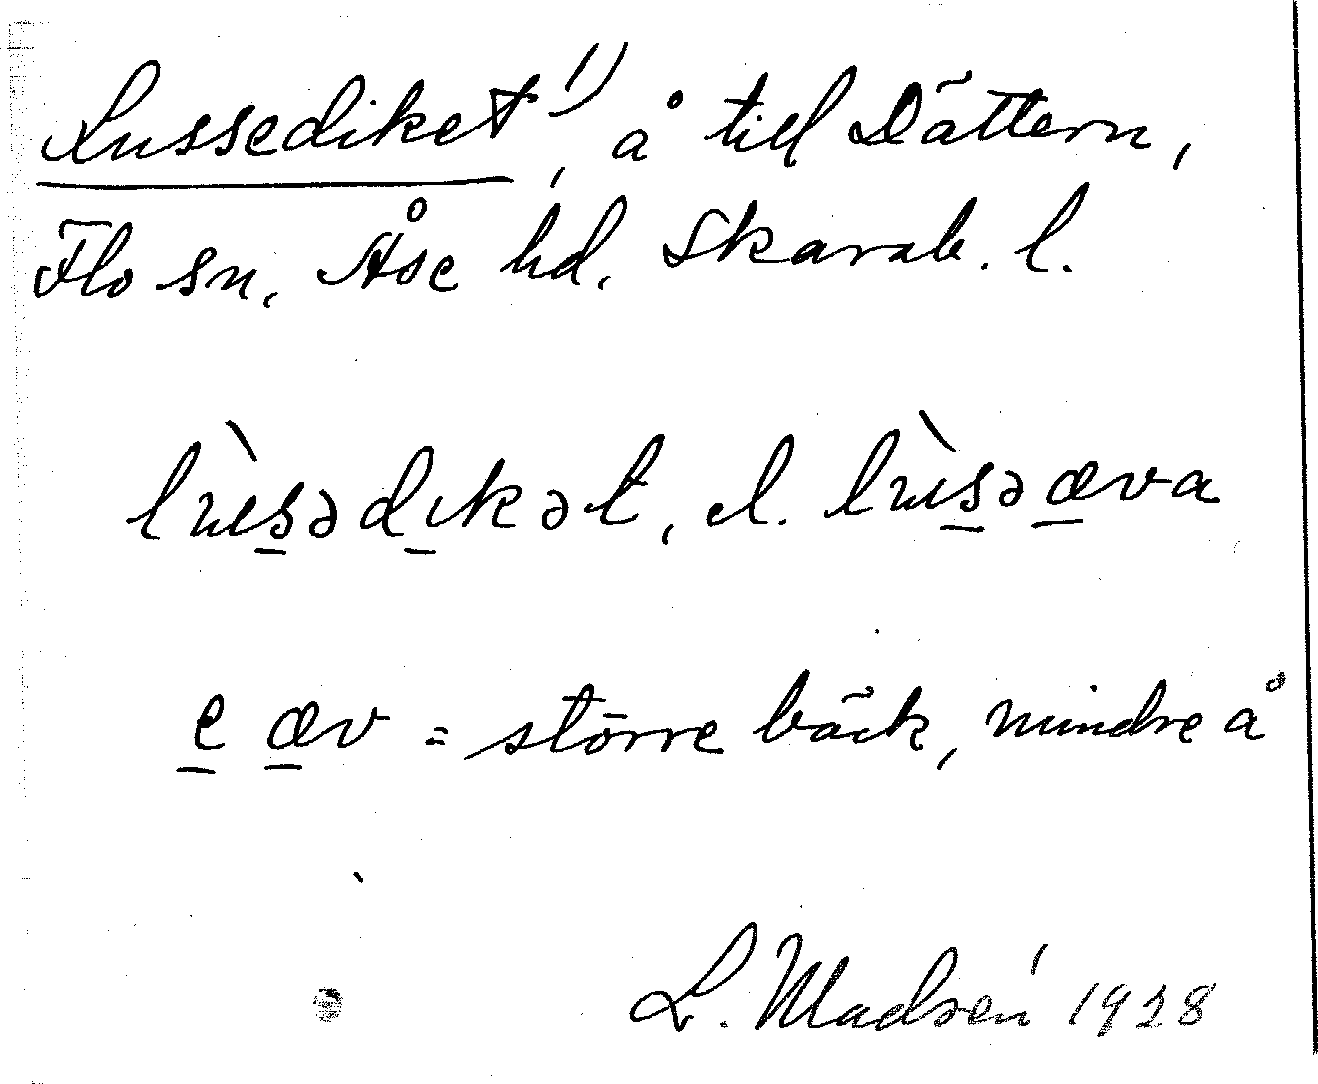 Lussediket 1), å till Dättern,
Flo sn, Åse hd, Skarab. l.
lùsədɩkət, el. lùsəæva
e æv = större bäck, mindre å
L. Modéen 1928